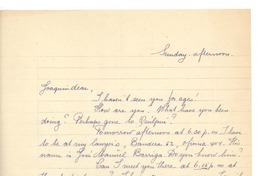 Sunday afternoon.
Joaquin dear,
I haven't seen you for ages!
How are you. What have you been
doing? Perhaps gone to Quilpué?
Tomorrow afternoon at 6.30 p.m I have
to be at my lawyer's, Bandera 52, oficina 404. His
name is José Manuel Barriga. Do you know him?
Can I meet you there at 6.15 p.m